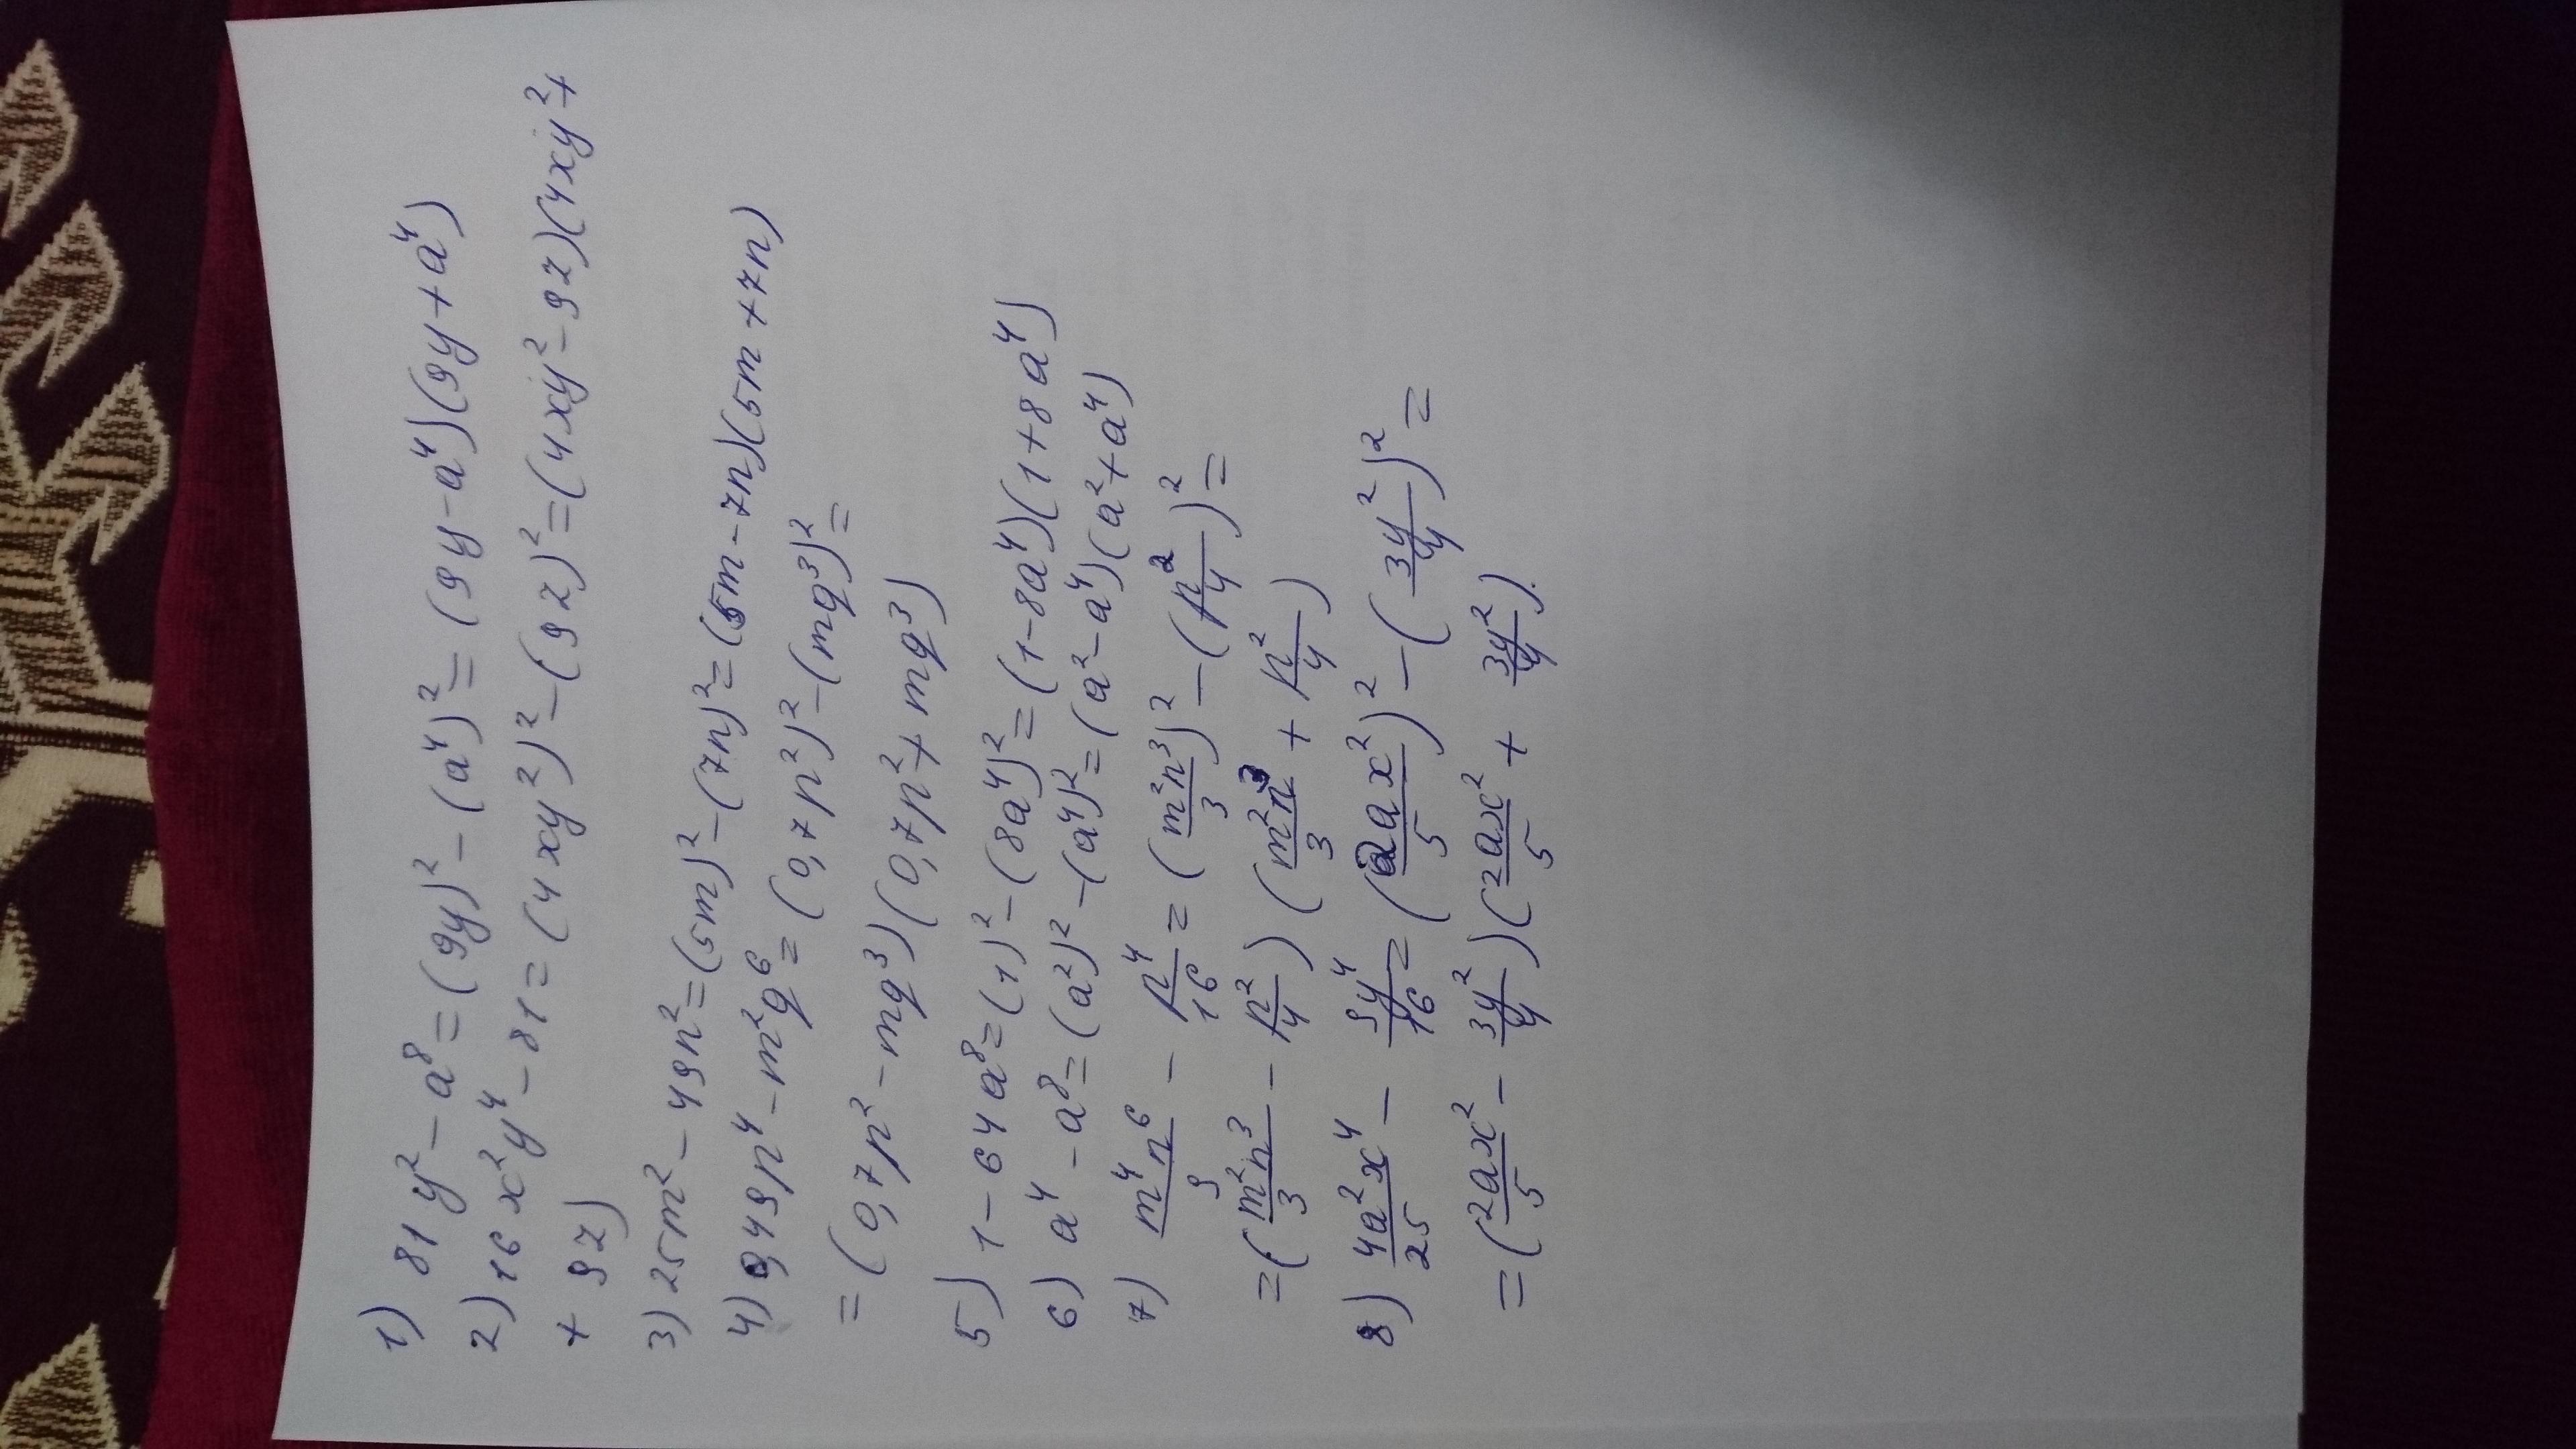 1) 81y² - a⁸ = (9y)² - (a⁴)² = (9y - a⁴)(9y + a⁴)
2) 16x²y⁴ - 81 = (4xy²)² - (9z)² = (4xy² - 9z)(4xy² +
+ 9z)
3) 25m² - 49n² = (5m)² - (7n)² = (5m - 7n)(5m + 7n)
4) 0,49p⁴ - m²q⁶ = (0,7p²)² - (mq³)² =
= (0,7p² - mq³)(0,7p² + mq³)
5) 1 - 64a⁸ = (1)² - (8a⁴)² = (1 - 8a⁴)(1 + 8a⁴)
6) a⁴ - a⁸ = (a²)² - (a⁴)² = (a² - a⁴)(a² + a⁴)
7) m⁴n⁶/9 - p⁴/16 = (m²n³/3)² - (p²/4)² =
= (m²n³/3 - p²/4)(m²n³/3 + p²/4)
8) 4a²x⁴/25 - 9y⁴/16 = (2ax²/5)² - (3y²/4)² =
= (2ax²/5 - 3y²/4)(2ax²/5 + 3y²/4).